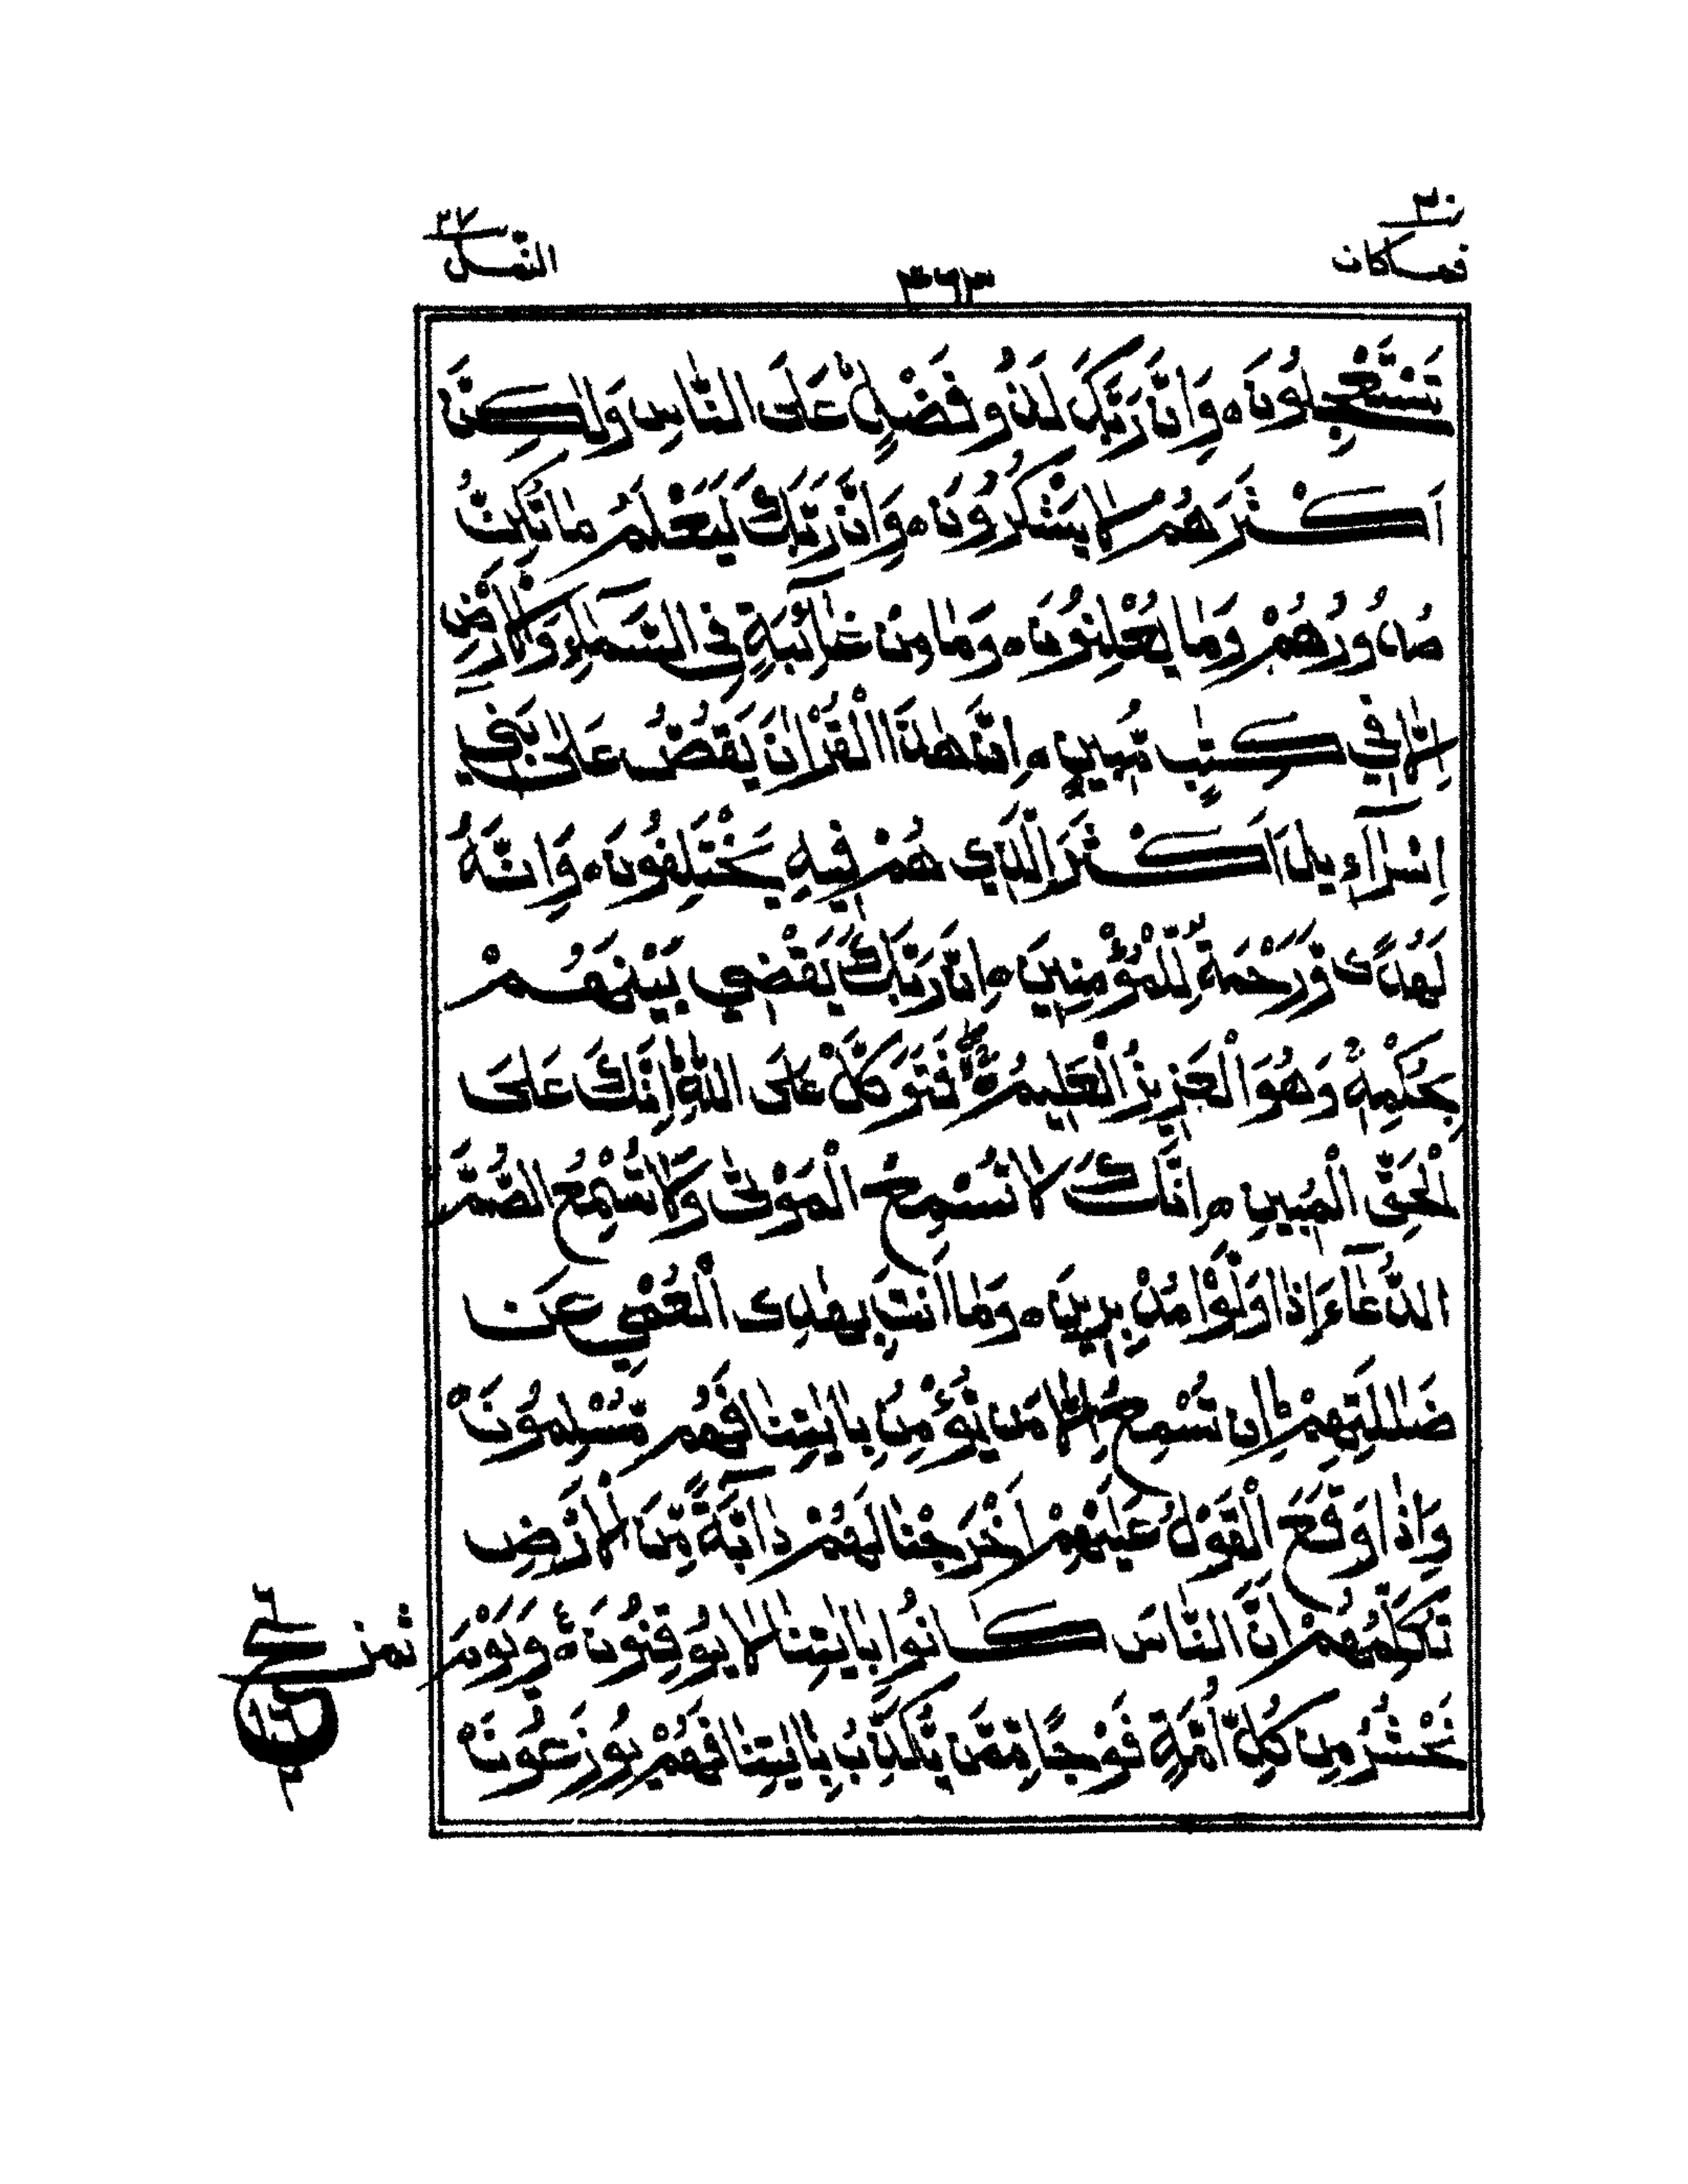 ن ٢٠
فماكان
٣٦٣
٢٧
النمل
تَسْتَعْجِلُوْنَ ۝ وَاِنَّ رَبَّكَ لَذُوْ فَضْلٍ عَلَى النَّاسِ وَلٰكِنَّ
اَكْثَرَهُمْ لَا يَشْكُرُوْنَ ۝ وَاِنَّ رَبَّكَ لَيَعْلَمُ مَا تُكِنُّ
صُدُوْرُهُمْ وَمَا يُعْلِنُوْنَ ۝ وَمَا مِنْ غَآئِبَةٍ فِى السَّمَآءِ وَالْاَرْضِ
اِلَّا فِيْ كِتٰبٍ مُّبِيْنٍ ۝ اِنَّ هٰذَا الْقُرْاٰنَ يَقُصُّ عَلٰى بَنِيْٓ
اِسْرَآءِيْلَ اَكْثَرَ الَّذِيْ هُمْ فِيْهِ يَخْتَلِفُوْنَ ۝ وَاِنَّهٗ
لَهُدًى وَّرَحْمَةٌ لِّلْمُؤْمِنِيْنَ ۝ اِنَّ رَبَّكَ يَقْضِيْ بَيْنَهُمْ
بِحُكْمِهٖ ۚ وَهُوَ الْعَزِيْزُ الْعَلِيْمُ ۝ فَتَوَكَّلْ عَلَى اللّٰهِ ؕ اِنَّكَ عَلَى
الْحَقِّ الْمُبِيْنِ ۝ اِنَّكَ لَا تُسْمِعُ الْمَوْتٰى وَلَا تُسْمِعُ الصُّمَّ
الدُّعَآءَ اِذَا وَلَّوْا مُدْبِرِيْنَ ۝ وَمَا اَنْتَ بِهٰدِى الْعُمْيِ عَنْ
ضَلٰلَتِهِمْ ؕ اِنْ تُسْمِعُ اِلَّا مَنْ يُّؤْمِنُ بِاٰيٰتِنَا فَهُمْ مُّسْلِمُوْنَ ۝
وَاِذَا وَقَعَ الْقَوْلُ عَلَيْهِمْ اَخْرَجْنَا لَهُمْ دَآبَّةً مِّنَ الْاَرْضِ
تُكَلِّمُهُمْ اَنَّ النَّاسَ كَانُوْا بِاٰيٰتِنَا لَا يُوْقِنُوْنَ ۝ وَيَوْمَ
نَحْشُرُ مِنْ كُلِّ اُمَّةٍ فَوْجًا مِّمَّنْ يُّكَذِّبُ بِاٰيٰتِنَا فَهُمْ يُوْزَعُوْنَ ۝
ثمن
٦
ع
١٦
٢